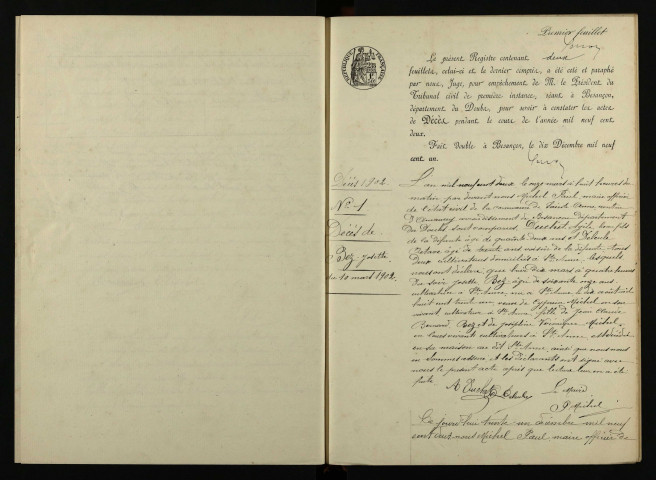 Premier feuillet
RÉPUBLIQUE FRANÇAISE
Le présent Registre contenant deux
feuillets, celui-ci et le dernier compris, a été coté et paraphé
par nous, Juge, pour empêchement de M. le Président du
Tribunal civil de première instance, séant à Besançon,
département du Doubs, pour servir à constater les actes
de Décès pendant le cours de l'année mil neuf cent
deux.
Fait double à Besançon, le dix Décembre mil neuf
cent un.
Décès 1902
N° 1
Décès de
Bez Josette
du 10 mars 1902
L'an mil neuf cent deux le onze mars à huit heures du
matin par devant nous Michel Paul, maire officier
de l'état civil de la commune de Sainte Anne canton
D'Amancey arrondissement de Besançon département
du Doubs sont comparus, Cuchet fils
de la défunte âgé de quarante deux ans et
âgé de trente ans voisin de la défunte, tous
deux cultivateurs domiciliés à Ste Anne, lesquels
nous ont déclaré que hier dix mars à quatre heures
du soir Josette Bez âgée de soixante onze ans
cultivatrice à Ste Anne, née à Ste Anne le août mil
huit cent trente un, veuve de Michel en son
vivant cultivateur à Ste Anne, fille de Jean Claude
Bernard Bez et de Joséphine Véronique Michel,
en leurs vivants cultivateurs à Ste Anne, est décédée
en sa maison au dit Ste Anne, ainsi que nous nous
en sommes assuré. Et les Déclarants ont signé avec
nous le présent acte après que lecture leur en a été
faite.
A Cuchet
Le Maire
P Michel
Ce jourd'hui trente un décembre mil neuf
cent deux nous Michel Paul maire officier de